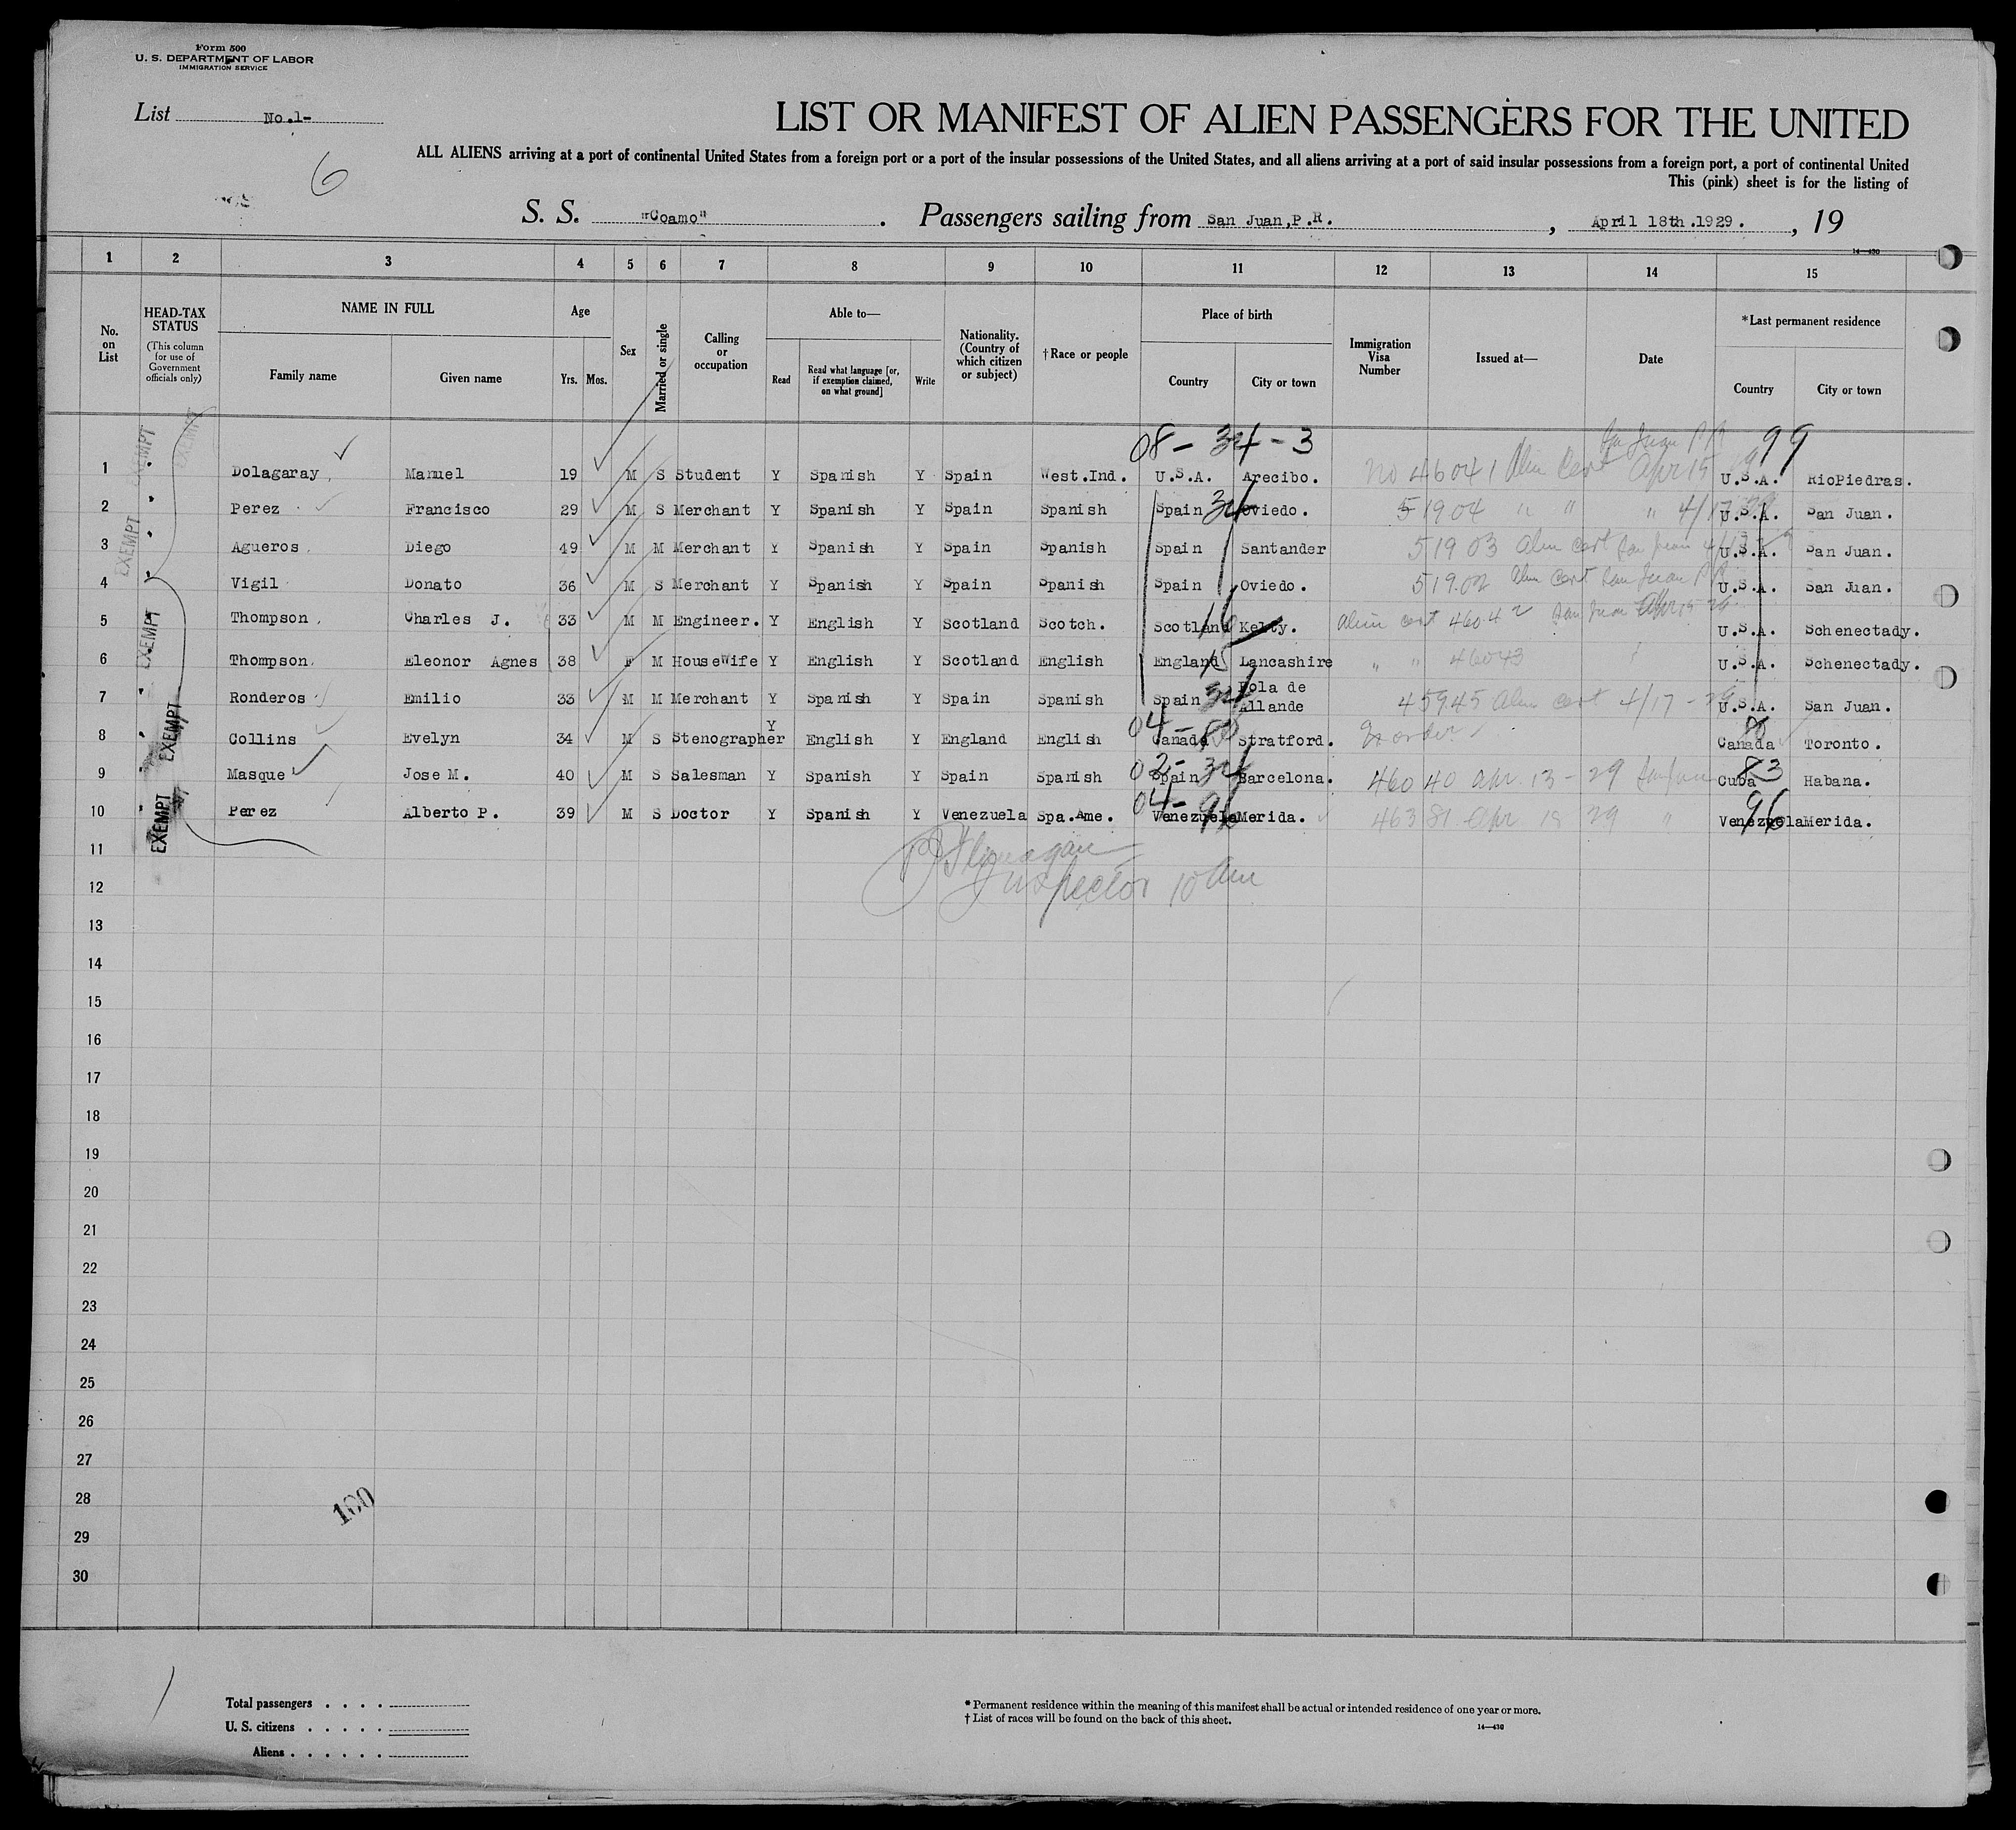 Form 500
U. S. DEPARTMENT OF LABOR
IMMIGRATION SERVICE
List No.1-
LIST OR MANIFEST OF ALIEN PASSENGERS FOR THE UNITED
6
ALL ALIENS arriving at a port of continental United States from a foreign port or a port of the insular possessions of the United States, and all aliens arriving at a port of said insular possessions from a foreign port, a port of continental United
This (pink) sheet is for the listing of
S. S. "Coamo". Passengers sailing from San Juan,P.R. , April 18th.1929. , 19
14—430
1 2 3 4 5 6 7 8 9 10 11 12 13 14 15
No. on List
HEAD-TAX STATUS
(This column for use of Government officials only)
NAME IN FULL
Family name
Given name
Age
Yrs. Mos.
Sex
Married or single
Calling or occupation
Able to—
Read
Read what language [or, if exemption claimed, on what ground]
Write
Nationality. (Country of which citizen or subject)
†Race or people
Place of birth
Country
City or town
Immigration Visa Number
Issued at—
Date
*Last permanent residence
Country
City or town
08 - 34 - 3 San Juan PR 99
1 Dolagaray Manuel 19 M S Student Y Spanish Y Spain West.Ind. U.S.A. Arecibo. No 46041 Alien Cert Apr 15 U.S.A. RioPiedras.
2 " Perez Francisco 29 M S Merchant Y Spanish Y Spain Spanish Spain 34 Oviedo. 51904 " " " 4/17 U.S.A. San Juan.
3 " Agueros Diego 49 M M Merchant Y Spanish Y Spain Spanish Spain Santander 51903 alien cert San Juan U.S.A. San Juan.
4 Vigil Donato 36 M S Merchant Y Spanish Y Spain Spanish Spain Oviedo. 51902 alien cert San Juan PR U.S.A. San Juan.
5 Thompson Charles J. 33 M M Engineer. Y English Y Scotland Scotch. Scotland Kelty. alien cert 46042 San Juan Apr 15 U.S.A. Schenectady.
6 Thompson Eleonor Agnes 38 F M HouseWife Y English Y Scotland English England 15 Lancashire " " 46043 U.S.A. Schenectady.
7 Ronderos Emilio 33 M M Merchant Y Spanish Y Spain Spanish Spain 34 Pola de Allande 45945 alien cert 4/17 - 29 U.S.A. San Juan.
8 Collins Evelyn 34 M S Stenographer Y English Y England English 04 - 80 Canada Stratford. In order Canada Toronto.
9 Masque Jose M. 40 M S Salesman Y Spanish Y Spain Spanish 02 - 34 Spain Barcelona. 46040 Apr. 13 - 29 San Juan Cuba 83 Habana.
10 Perez Alberto P. 39 M S Doctor Y Spanish Y Venezuela Spa.Ame. 04 - 96 Venezuela Merida. 46381 Apr 18 29 " Venezuela 96 Merida.
EXEMPT
EXEMPT
EXEMPT
EXEMPT
EXEMPT
EXEMPT
11
Inspector 10 am
12
13
14
15
16
17
18
19
20
21
22
23
24
25
26
27
28
100
29
30
Total passengers . . . .
U. S. citizens . . . . .
Aliens . . . . . .
* Permanent residence within the meaning of this manifest shall be actual or intended residence of one year or more.
† List of races will be found on the back of this sheet.
14—430